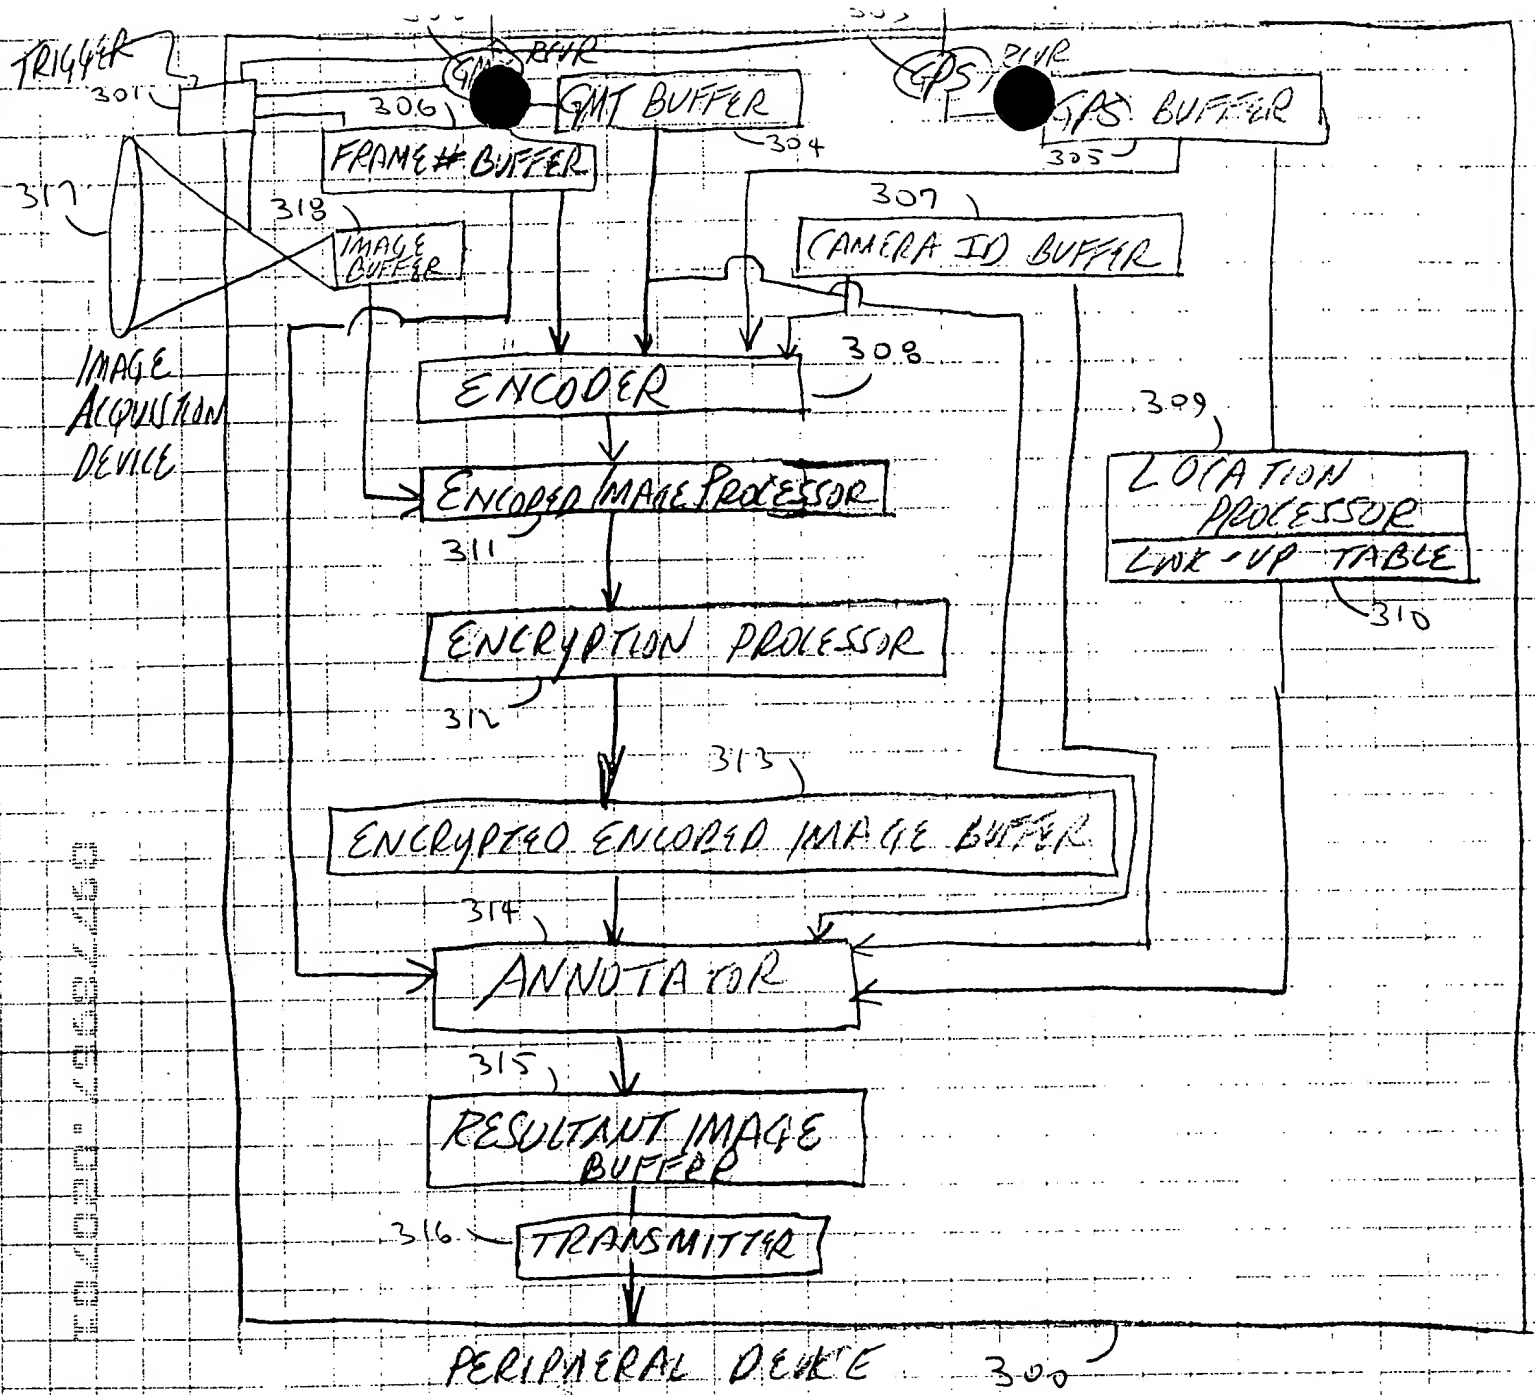 TRIGGER
301
303
RCVR
GPS RCVR
306
GMT BUFFER
304
GPS BUFFER
305
FRAME # BUFFER
317
318
IMAGE
BUFFER
307
CAMERA ID BUFFER
IMAGE
ACQUISTION
DEVICE
ENCODER
308
309
LOCATION
PROCESSOR
LOOK-UP TABLE
310
ENCODED IMAGE PROCESSOR
311
ENCRYPTION PROCESSOR
312
313
ENCRYPTED ENCODED IMAGE BUFFER
314
ANNOTATOR
315
RESULTANT IMAGE
BUFFER
316
TRANSMITTER
PERIPHERAL DEVICE
300